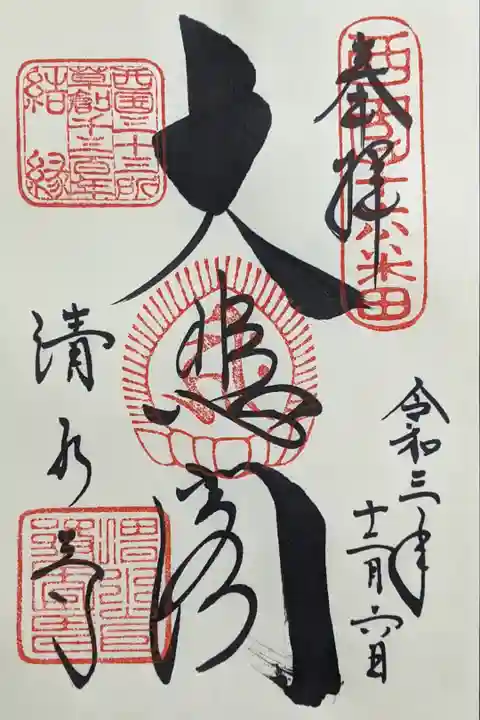 奉拝
西国十六番
令和三年
十二月六日
大悲閣
西国三十三所
草創千三百年
結縁
清水寺